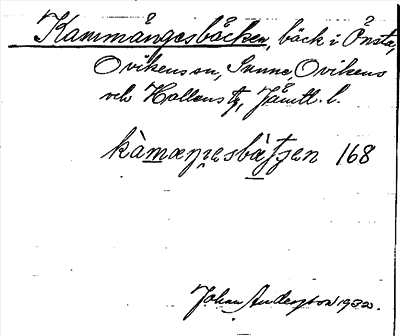 Kammångesbäcken, bäck i Önsta,
Ovikens sn, Sunne, Ovikens
och Hallens tg, Jämtl. l.
kàmaŋesbàtʃen 168
Johan Anderson 1932.